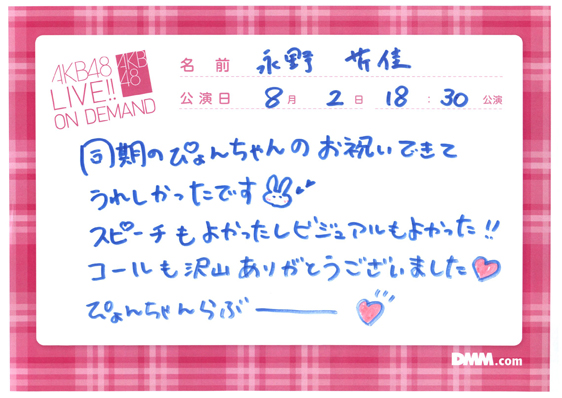 AKB48
LIVE!!
ON DEMAND
AKB
48
名 前 永野 芹佳
公演日 8月 2日 18:30 公演
同期のぴょんちゃんのお祝いできて
うれしかったです
スピーチもよかったしビジュアルもよかった!!
コールも沢山ありがとうございました
ぴょんちゃんらぶ―――
DMM.com